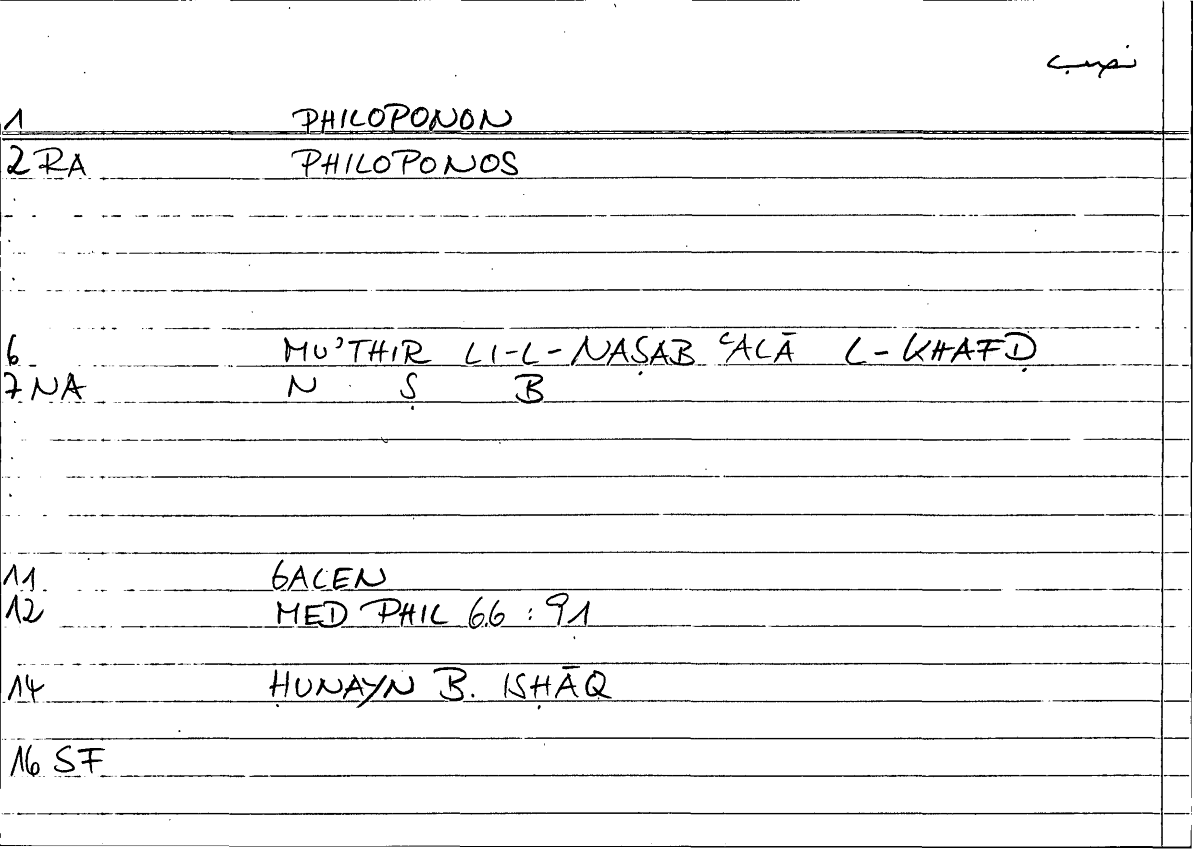 نصب
1 PHILOPONON
2 RA PHILOPONOS
6 MUʾTHIR LI-L-NAṢAB ʿALĀ L-KHAFḌ
7 NA N Ṣ B
11 GALEN
12 MED PHIL 6.6 : 91
14 ḤUNAYN B. ISḤĀQ
16 SF